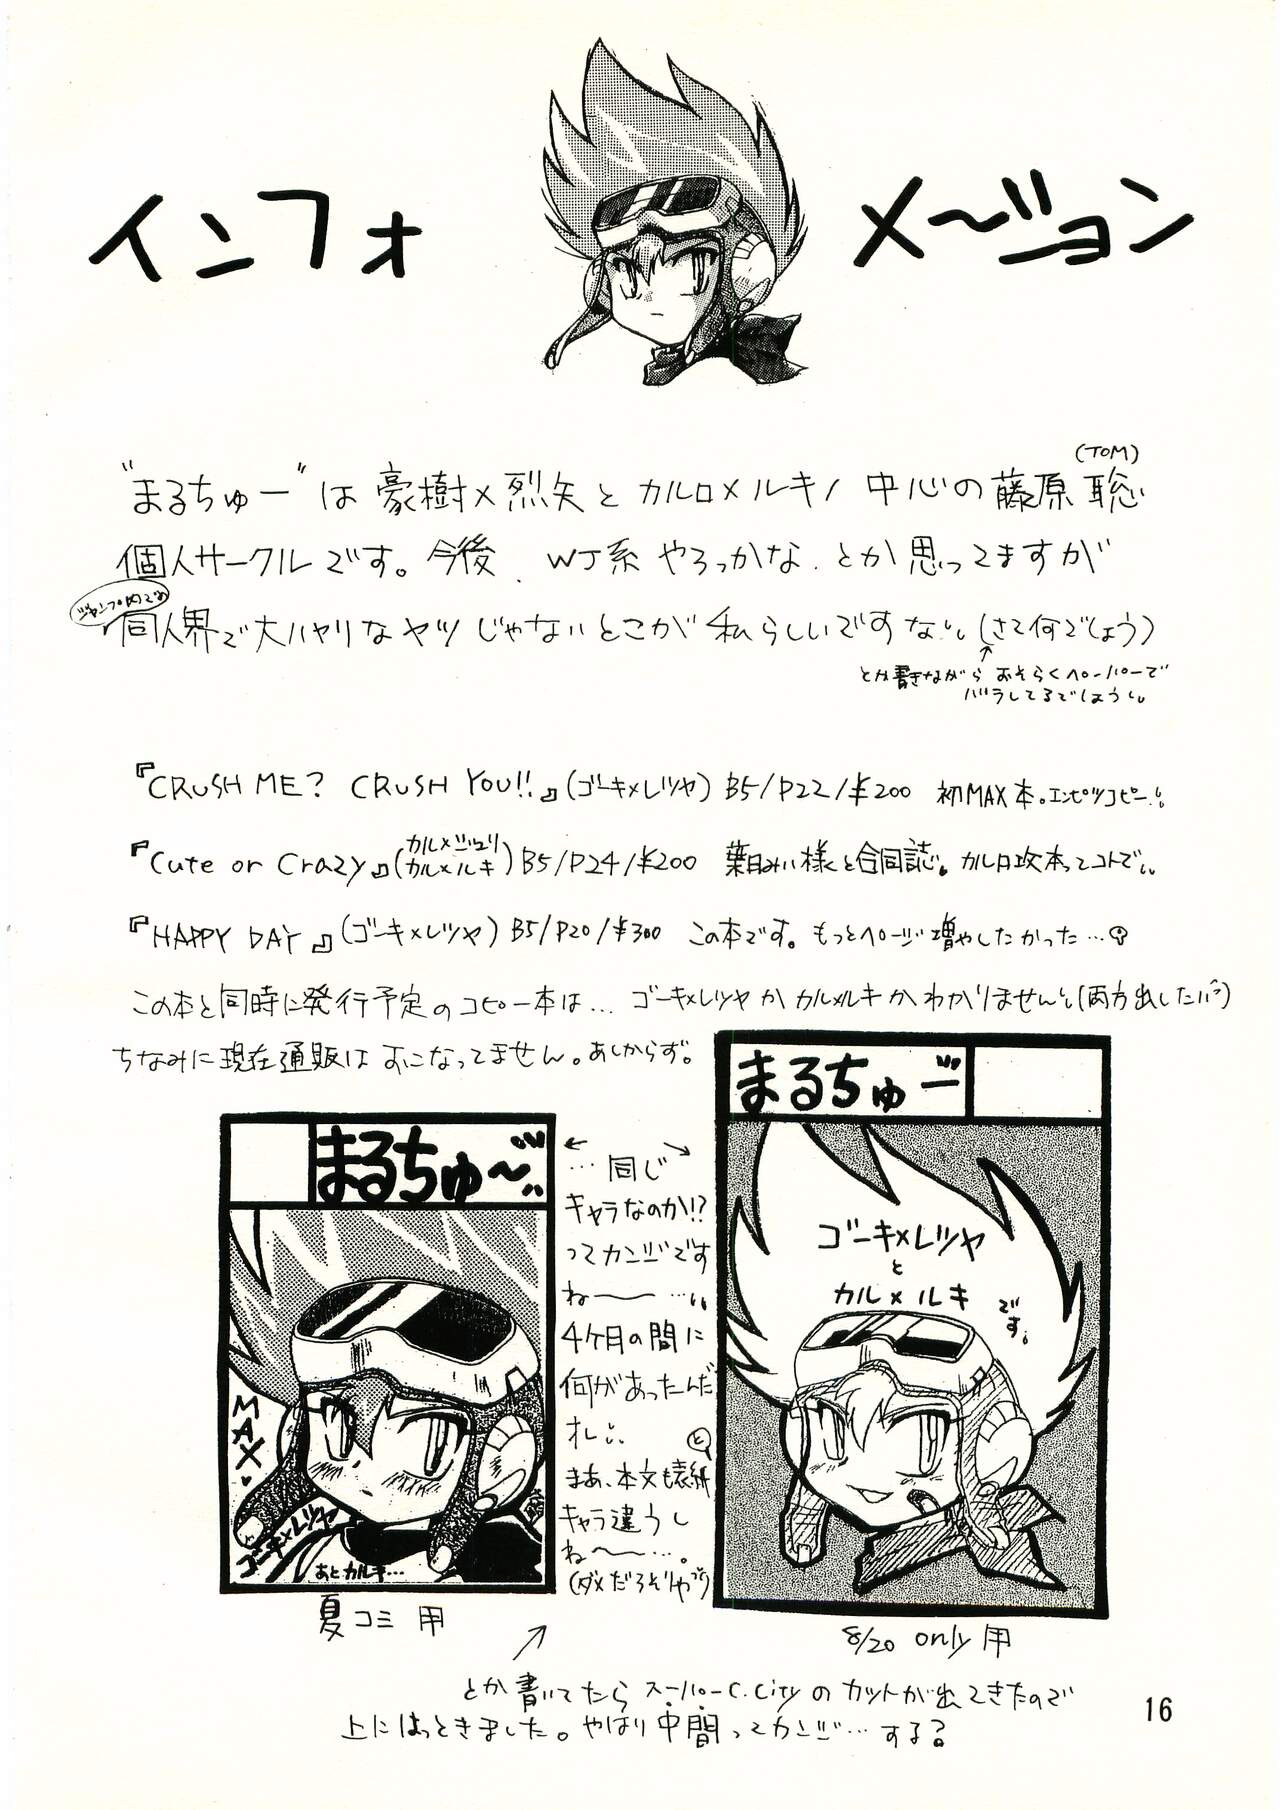 インフォメ～ジョン
(TOM)
"まるちゅー"は豪樹×烈矢とカルロ×ルキノ中心の藤原聡
個人サークルです。今後、WJ系やろっかな、とか思ってますが
ジャンプ内でも
同人界で大ハヤリなヤツじゃないとこが私らしいですな (さて何でしょう)
↑
とか書きながらおそらくペーパーで
バラしてるでしょう
『CRUSH ME? CRUSH YOU!!』(ゴーキ×レツヤ) B5/P22/¥200 初MAX本。エンピツコピー
『Cute or Crazy』(カル×ジュリ カル×ルキ) B5/P24/¥200 葉月みい様と合同誌。カルロ攻本ってコトで
『HAPPY DAY』(ゴーキ×レツヤ) B5/P20/¥300 この本です。もっとページ増やしたかった…
この本と同時に発行予定のコピー本は… ゴーキ×レツヤかカル×ルキかわかりません (両方出したい)
ちなみに現在通販はおこなってません。あしからず。
まるちゅ～
MAX
ゴーキ×レツヤ
あとカルキ…
夏コミ用
← →
…同じ
キャラなのか!?
ってカンジです
ね～…
4ヶ月の間に
何があったんだ
オレ
まあ、本文も表紙と
キャラ違うし
ね～…。
(ダメだろぞりゃ)
まるちゅー
ゴーキ×レツヤ
と
カル×ルキ
です。
8/20 only用
とか書いてたらスーパーC.Cityのカットが出てきたので
上にはっときました。やはり中間ってカンジ…する?
16